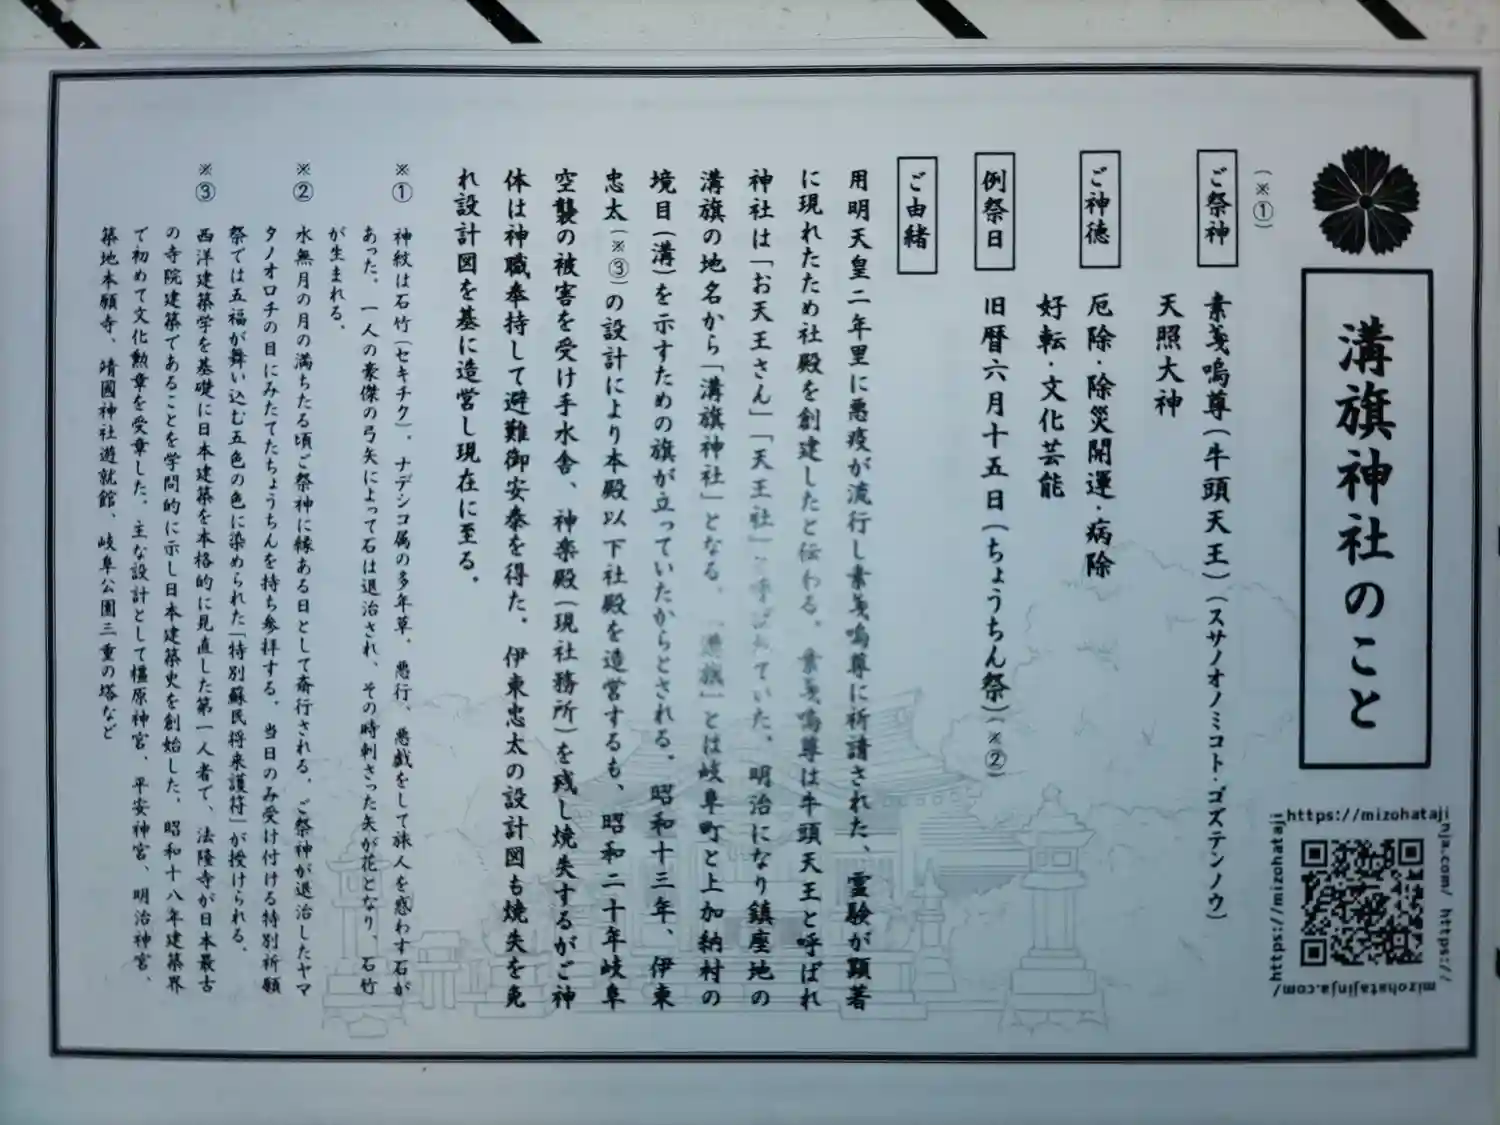 (※①)
溝旗神社のこと
https://mizohatajinja.com/ https://mizohatajinja.com/ https://mizohatajinja.com/
ご祭神
素戔嗚尊(牛頭天王)(スサノオノミコト・ゴズテンノウ)
天照大神
ご神徳
厄除・除災開運・病除
好転・文化芸能
例祭日
旧暦六月十五日(ちょうちん祭)(※②)
ご由緒
用明天皇二年里に悪疫が流行し素戔嗚尊に祈請された、霊験が顕著
に現れたため社殿を創建したと伝わる。素戔嗚尊は牛頭天王と呼ばれ
神社は「お天王さん」「天王社」と呼ばれていた。明治になり鎮座地の
溝旗の地名から「溝旗神社」となる。「溝旗」とは岐阜町と上加納村の
境目(溝)を示すための旗が立っていたからとされる。昭和十三年、伊東
忠太(※③)の設計により本殿以下社殿を造営するも、昭和二十年岐阜
空襲の被害を受け手水舎、神楽殿(現社務所)を残し焼失するがご神
体は神職奉持して避難御安泰を得た。伊東忠太の設計図も焼失を免
れ設計図を基に造営し現在に至る。
※① 神紋は石竹(セキチク)、ナデシコ属の多年草。悪行、悪戯をして旅人を惑わす石が
あった。一人の豪傑の弓矢によって石は退治され、その時刺さった矢が花となり、石竹
が生まれる。
※② 水無月の月の満ちたる頃ご祭神に縁ある日として斎行される。ご祭神が退治したヤマ
タノオロチの目にみたてたちょうちんを持ち参拝する。当日のみ受け付ける特別祈願
祭では五福が舞い込む五色の色に染められた「特別蘇民将来護符」が授けられる。
※③ 西洋建築学を基礎に日本建築を本格的に見直した第一人者で、法隆寺が日本最古
の寺院建築であることを学問的に示し日本建築史を創始した。昭和十八年建築界
で初めて文化勲章を受章した。主な設計として橿原神宮、平安神宮、明治神宮、
築地本願寺、靖國神社遊就館、岐阜公園三重の塔など